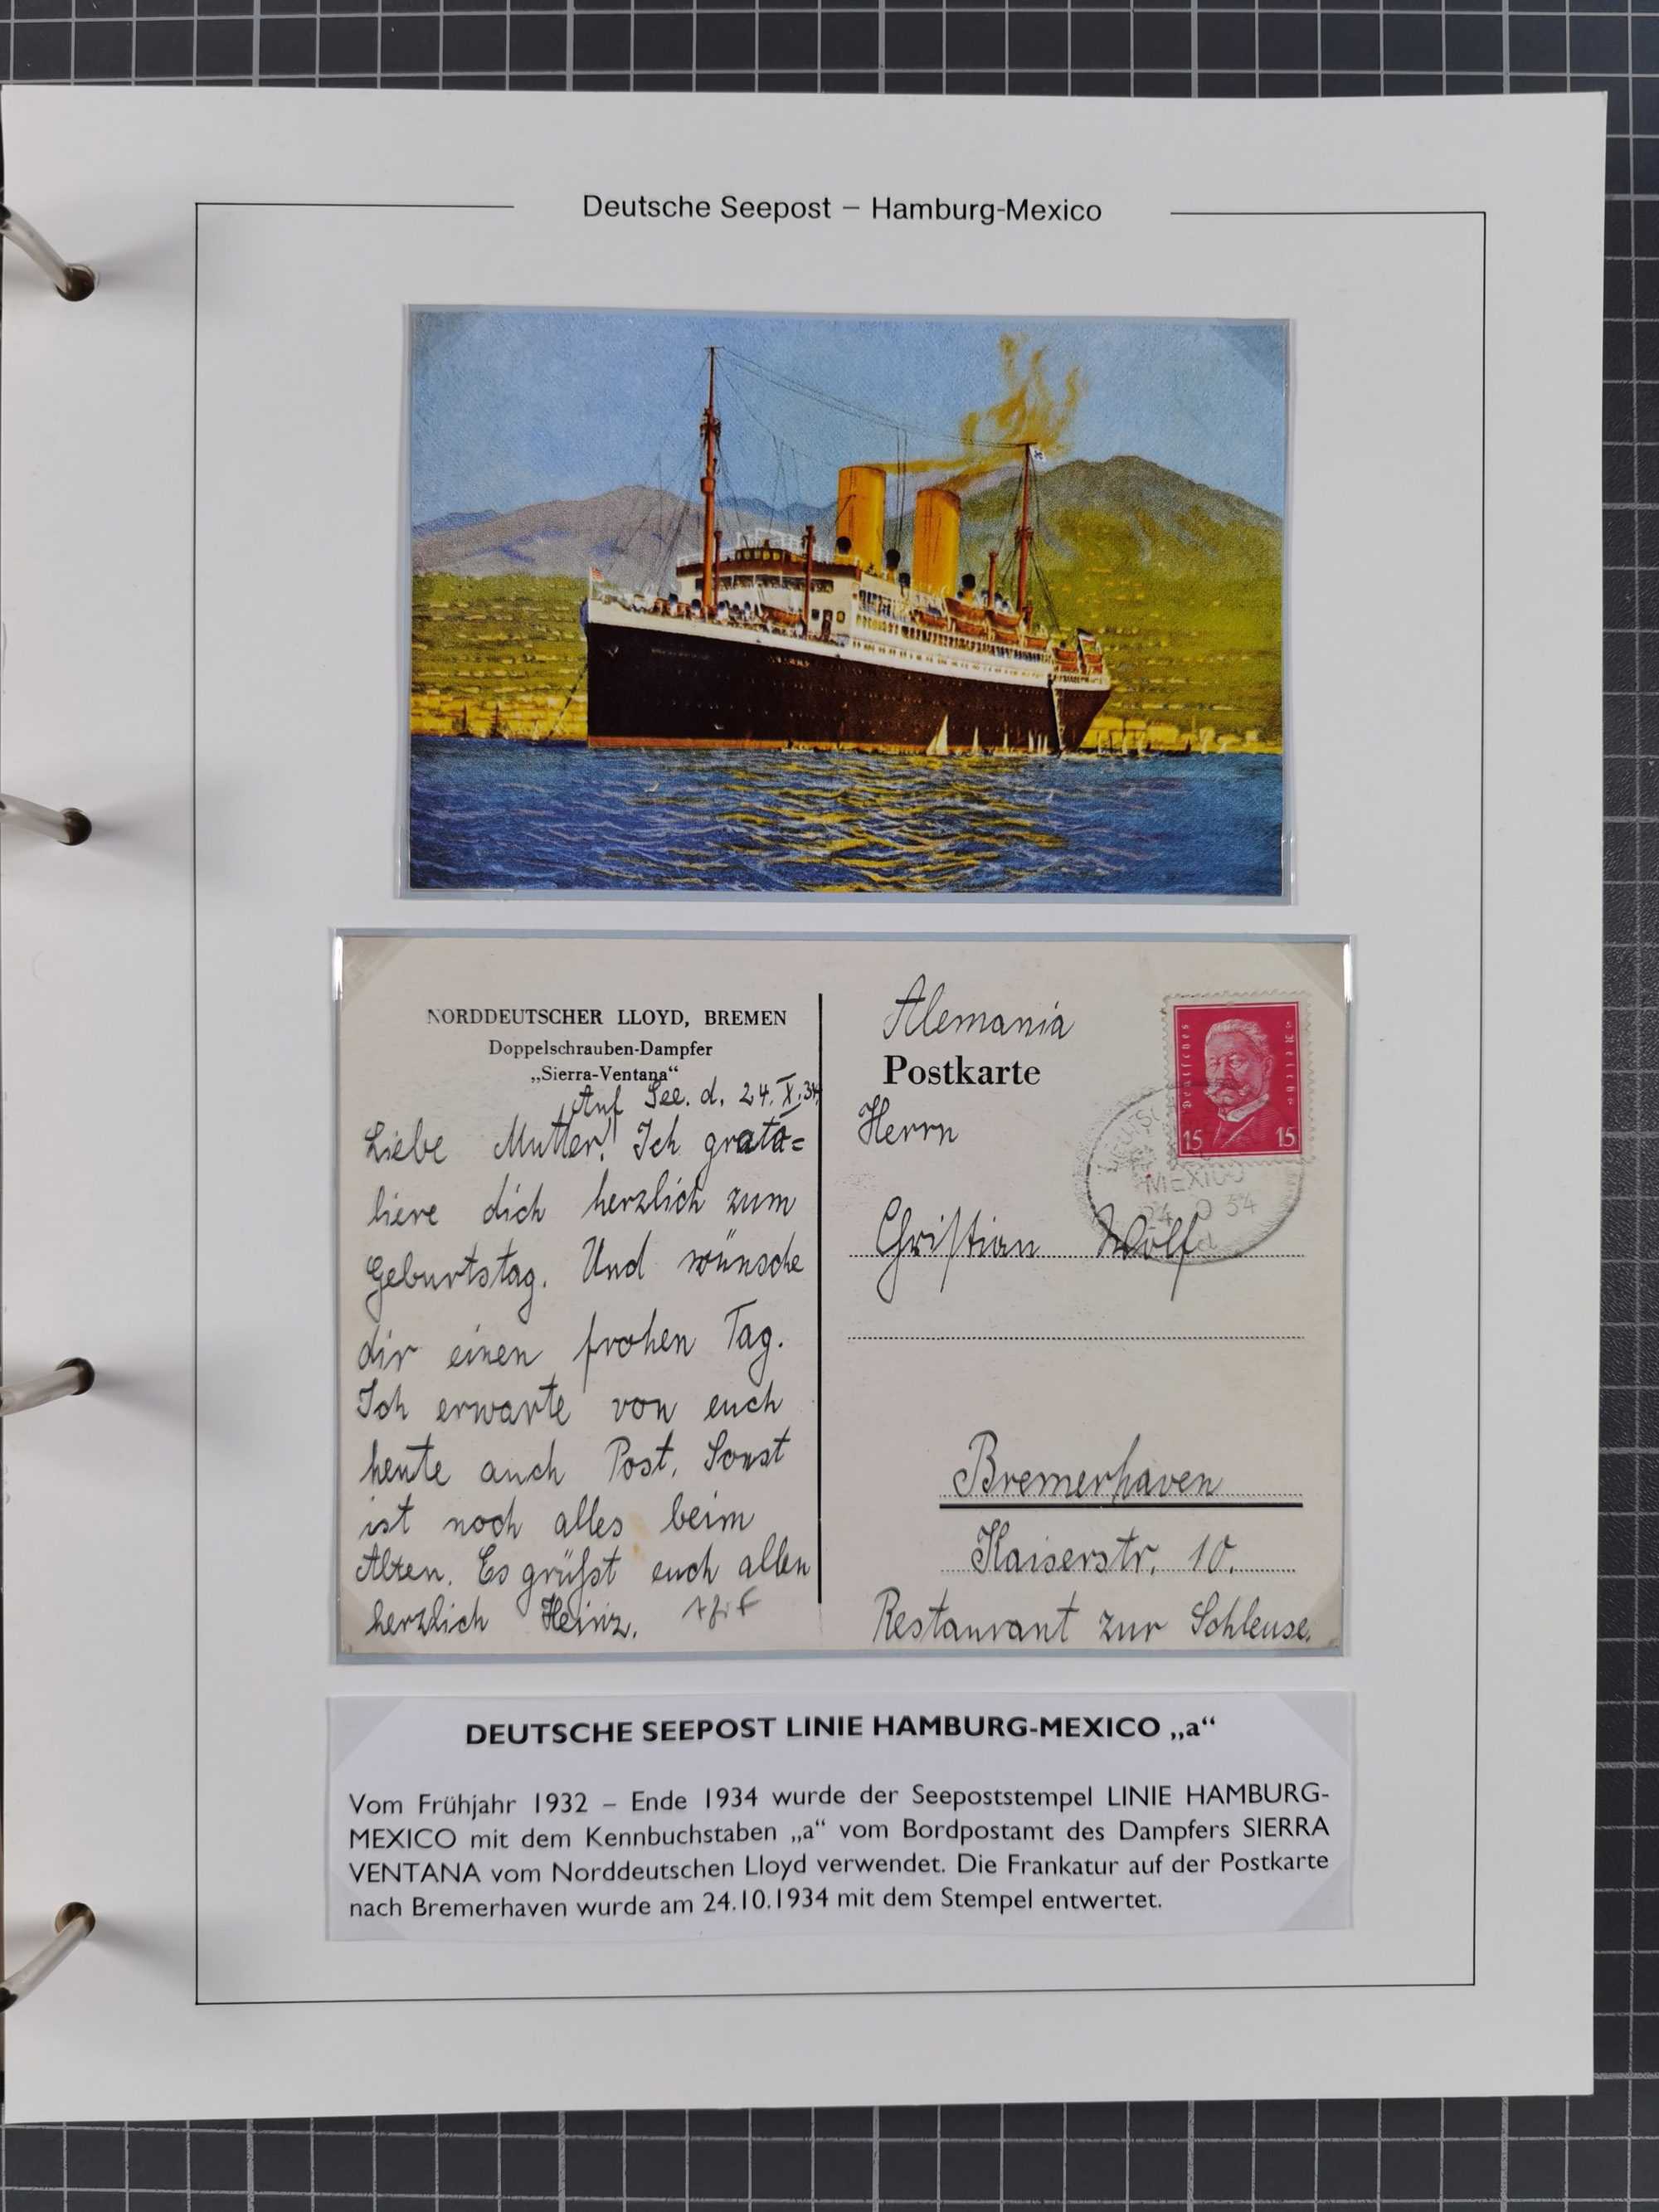 Deutsche Seepost – Hamburg-Mexico
NORDDEUTSCHER LLOYD, BREMEN
Doppelschrauben-Dampfer
„Sierra-Ventana“
Auf See. d. 24. X. 34.
Liebe Mutter! Ich gratu=
liere dich herzlich zum
Geburtstag. Und wünsche
dir einen frohen Tag.
Ich erwarte von euch
heute auch Post. Sonst
ist noch alles beim
Alten. Es grüßt euch allen
herzlich Heinz.
Alemania
Postkarte
Herrn
Christian Wolf
Bremerhaven
Kaiserstr. 10.
Restaurant zur Schleuse.
Deutsches Reich
15 15
MEXICO
34
DEUTSCHE SEEPOST LINIE HAMBURG-MEXICO „a“
Vom Frühjahr 1932 – Ende 1934 wurde der Seepoststempel LINIE HAMBURG-
MEXICO mit dem Kennbuchstaben „a“ vom Bordpostamt des Dampfers SIERRA
VENTANA vom Norddeutschen Lloyd verwendet. Die Frankatur auf der Postkarte
nach Bremerhaven wurde am 24.10.1934 mit dem Stempel entwertet.